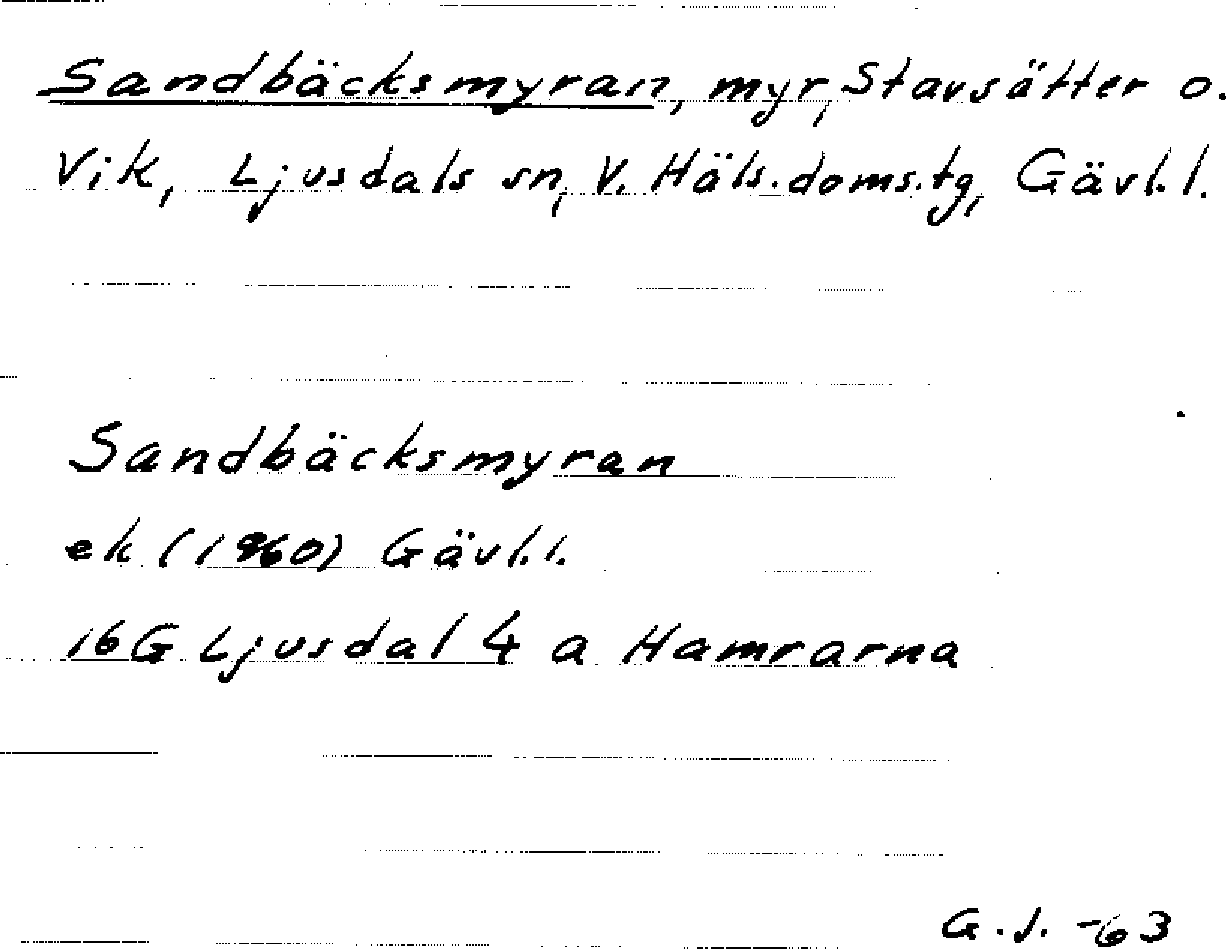 Sandbäcksmyran, myr, Stavsätter o.
Vik, Ljusdals sn, V. Häls. doms. tg, Gävl. l.
Sandbäcksmyran
ek (1960) Gävl. l.
16G Ljusdal 4 a Hamrarna
G. J. -63